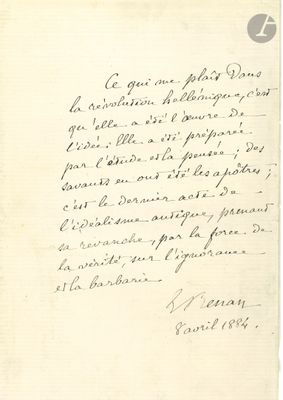 Ce qui me plaît dans
la révolution hellénique, c'est
qu'elle a été l'œuvre de
l'idée. Elle a été préparée
par l'étude et la pensée ; des
savants en ont été les apôtres ;
c'est le dernier acte de
l'idéalisme antique, prenant
sa revanche, par la force de
la vérité, sur l'ignorance
et la barbarie.
E Renan
8 avril 1884.